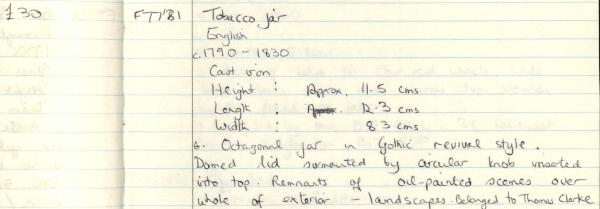 130 FT1'81 Tobacco jar
English
c.1790 - 1830
Cast iron
Height : Approx. 11.5 cms
Length : 12.3 cms
Width : 8.3 cms
Octagonal jar in Gothic revival style.
Domed lid surmounted by circular knob inserted
into top. Remnants of oil-painted scenes over
whole of exterior - landscapes. Belonged to Thomas Clarke